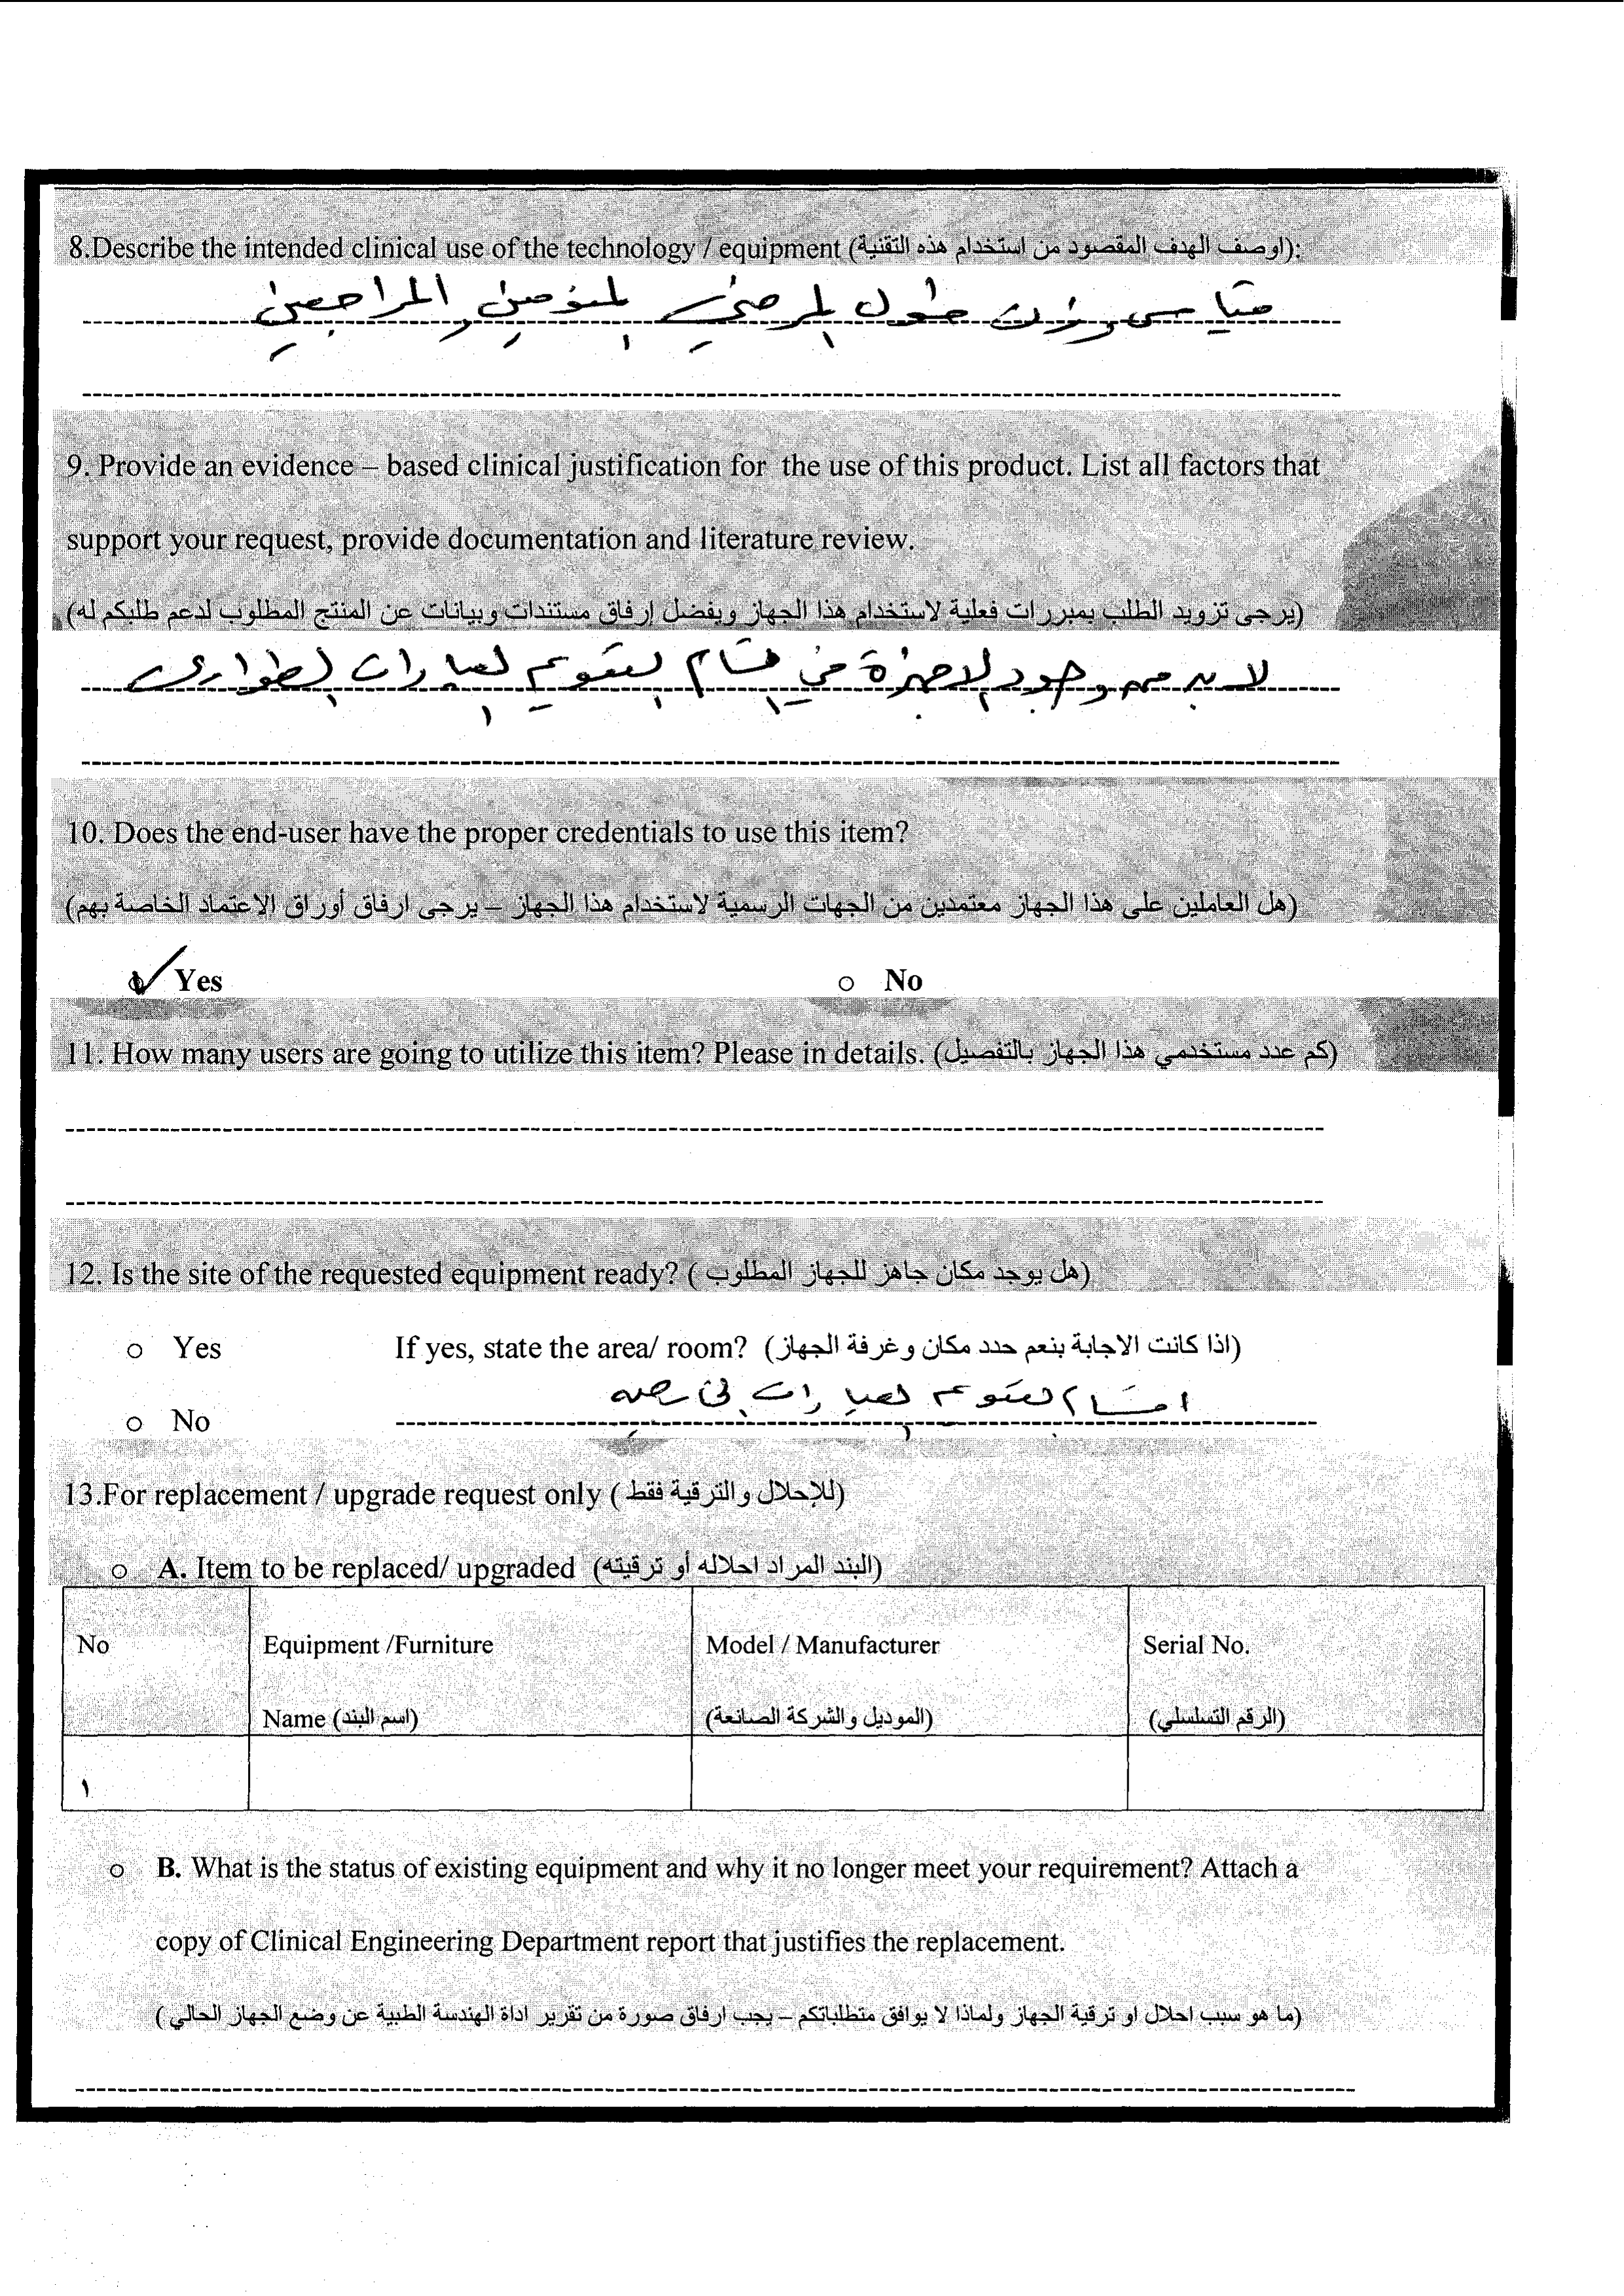 8.Describe the intended clinical use of the technology / equipment (اوصف الهدف المقصود من استخدام هذه التقنية):
قياس وزن طول المرضى المنومين والمراجعين
9. Provide an evidence – based clinical justification for the use of this product. List all factors that
support your request, provide documentation and literature review.
(يرجى تزويد الطلب بمبررات فعلية لاستخدام هذا الجهاز ويفضل إرفاق مستندات وبيانات عن المنتج المطلوب لدعم طلبكم له)
لا بد من وجود الاجهزة في اقسام التنويم العيادات الطوارئ
10. Does the end-user have the proper credentials to use this item?
(هل العاملين على هذا الجهاز معتمدين من الجهات الرسمية لاستخدام هذا الجهاز – يرجى ارفاق أوراق الاعتماد الخاصة بهم)
Yes
No
11. How many users are going to utilize this item? Please in details. (كم عدد مستخدمي هذا الجهاز بالتفصيل)
12. Is the site of the requested equipment ready? (هل يوجد مكان جاهز للجهاز المطلوب )
Yes If yes, state the area/ room? (اذا كانت الاجابة بنعم حدد مكان وغرفة الجهاز)
No اقسام التنويم العيادات
13.For replacement / upgrade request only (للإحلال والترقية فقط )
A. Item to be replaced/ upgraded (البند المراد احلاله أو ترقيته)
No
Equipment /Furniture
Name (اسم البند)
Model / Manufacturer
(الموديل والشركة الصانعة)
Serial No.
(الرقم التسلسلي)
١
B. What is the status of existing equipment and why it no longer meet your requirement? Attach a
copy of Clinical Engineering Department report that justifies the replacement.
(ما هو سبب احلال او ترقية الجهاز ولماذا لا يوافق متطلباتكم – يجب ارفاق صورة من تقرير اداة الهندسة الطبية عن وضع الجهاز الحالي )